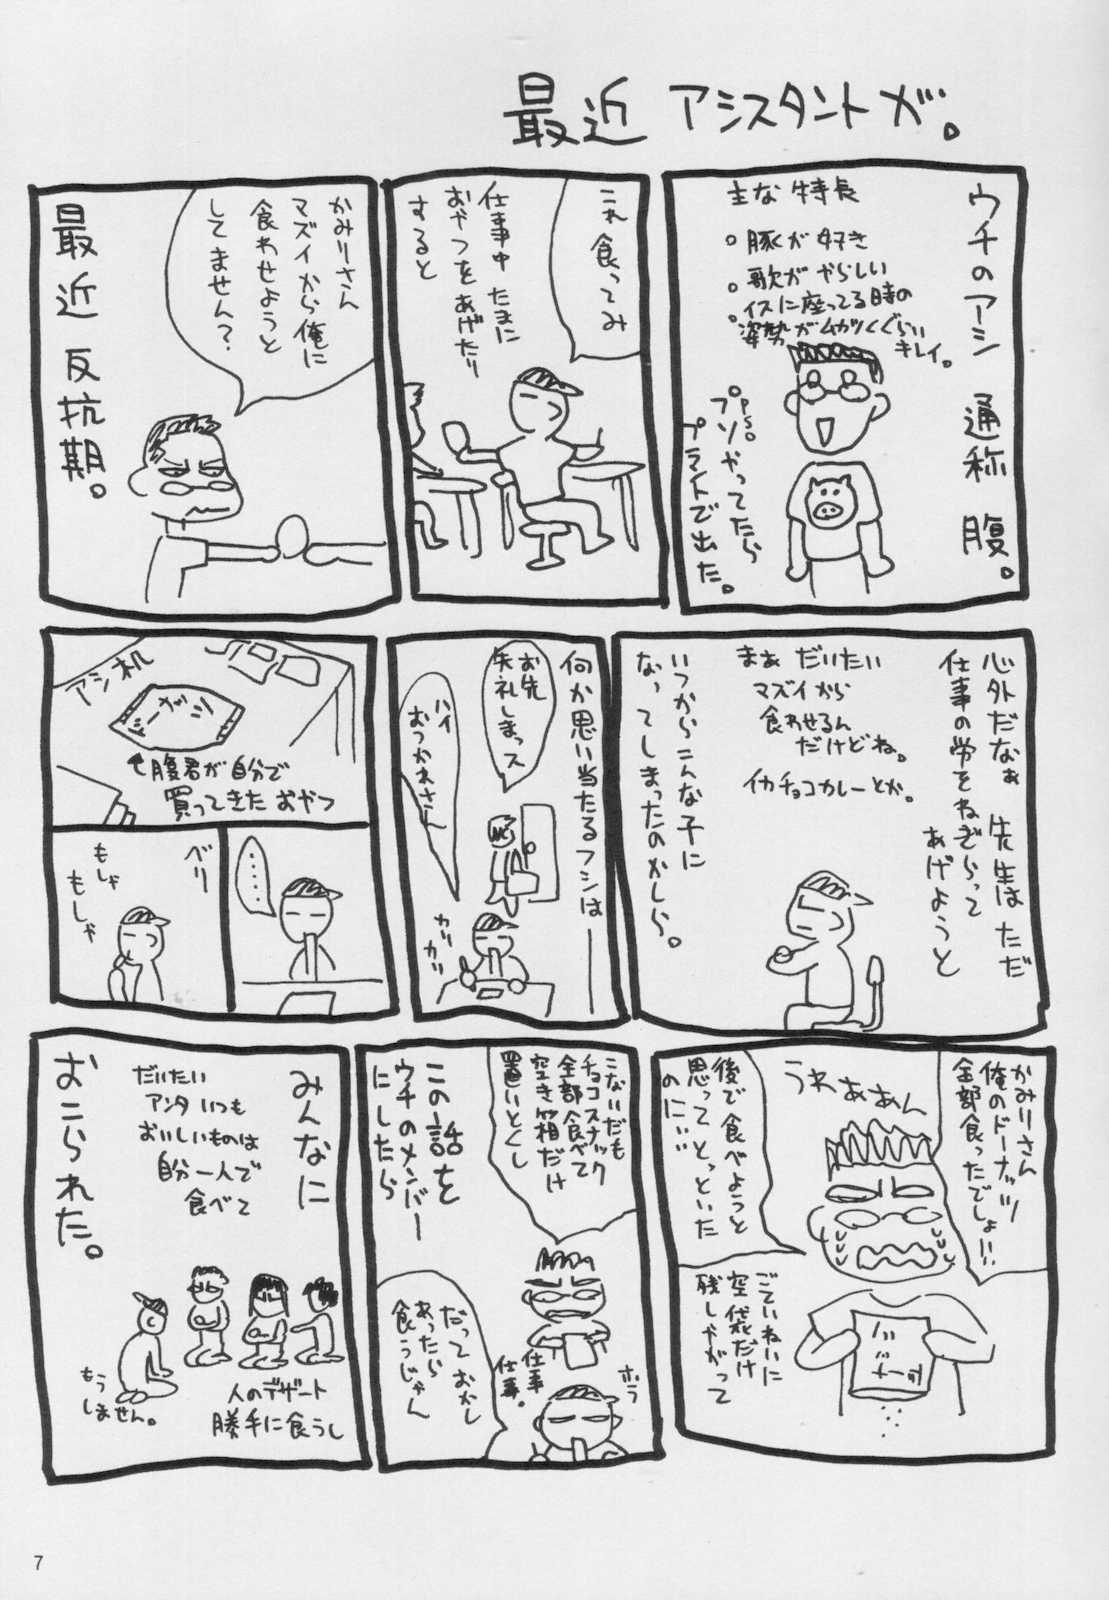 最近 アシスタントが。
ウチのアシ 通称 腹。
主な特長
。豚が好き
。歌がやらしい
。イスに座ってる時の
姿勢がムカツくぐらい
キレイ。
プソやってたら
プライトで出た。
これ食ってみ
仕事中 たまに
おやつをあげたり
すると
かみりさん
マズイから俺に
食わせようと
してません?
最近 反抗期。
心外だなぁ 先生はただ
仕事の労をねぎらって
あげようと
まぁ だいたい
マズイから
食わせるん
だけどね。
イカチョコカレーとか。
いつからこんな子に
なってしまったのかしら。
何か思い当たるフシは——
お先
失礼しまっス
ハイ
おつかれさん
カリ
カリ
アシ机
↑腹君が自分で
買ってきた おやつ
・・・・
べリー
もしゃ
もしゃ
かみりさん
俺のドーナッツ
全部食ったでしょ!!
うわぁあぁん
後で食べようと
思って とっといた
のに…
ごていねいに
空袋だけ
残しやがって
こないだも
チョコスナック
全部食べて
空き箱だけ
置いとくし
この話を
ウチのメンバー
にしたら
ホラ
仕事
仕事。
だって おかし
あったら
食うじゃん
みんなに
だいたい
アンタ いつも
おいしいものは
自分一人で
食べて
人のデザート
勝手に食うし
もう
しません。
おこられた。
7